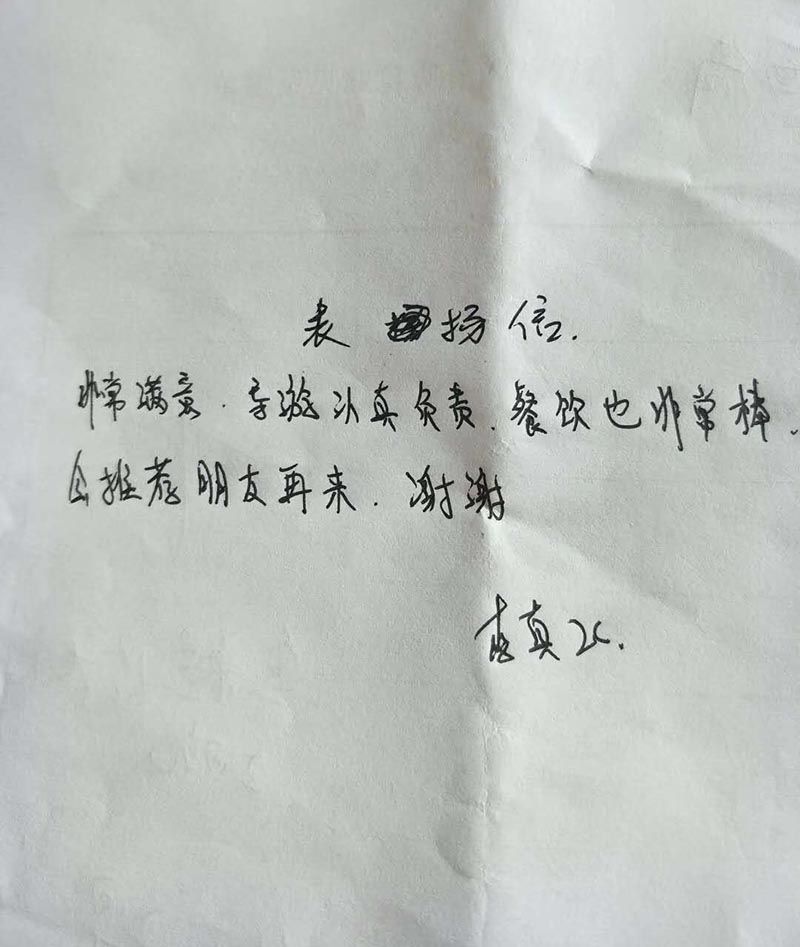 表扬信.
非常满意.导游认真负责.餐饮也非常棒.
会推荐朋友再来.谢谢